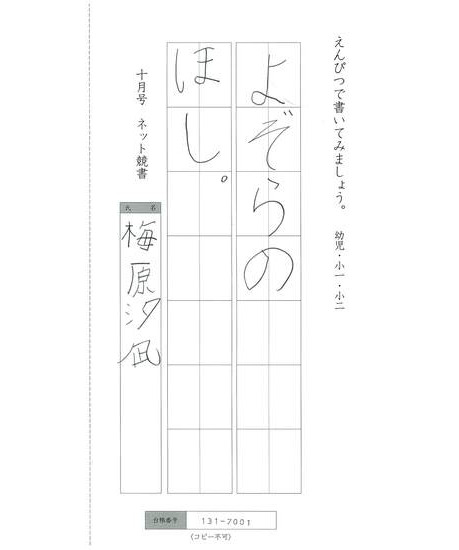 えんぴつで書いてみましょう。 幼児・小一・小二
よぞらの
ほし。
十月号 ネット競書
氏名
梅原汐凪
台帳番号 131-7001
(コピー不可)